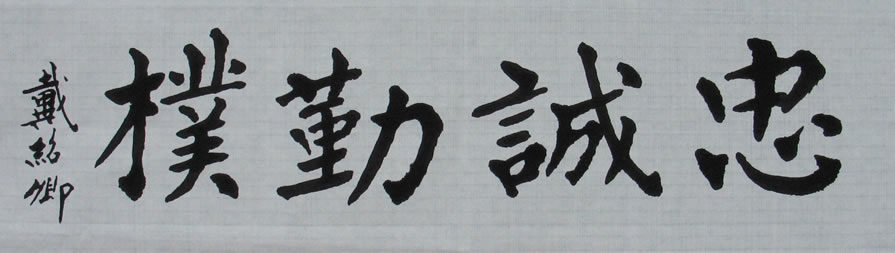 忠誠勤樸
戴紹卿